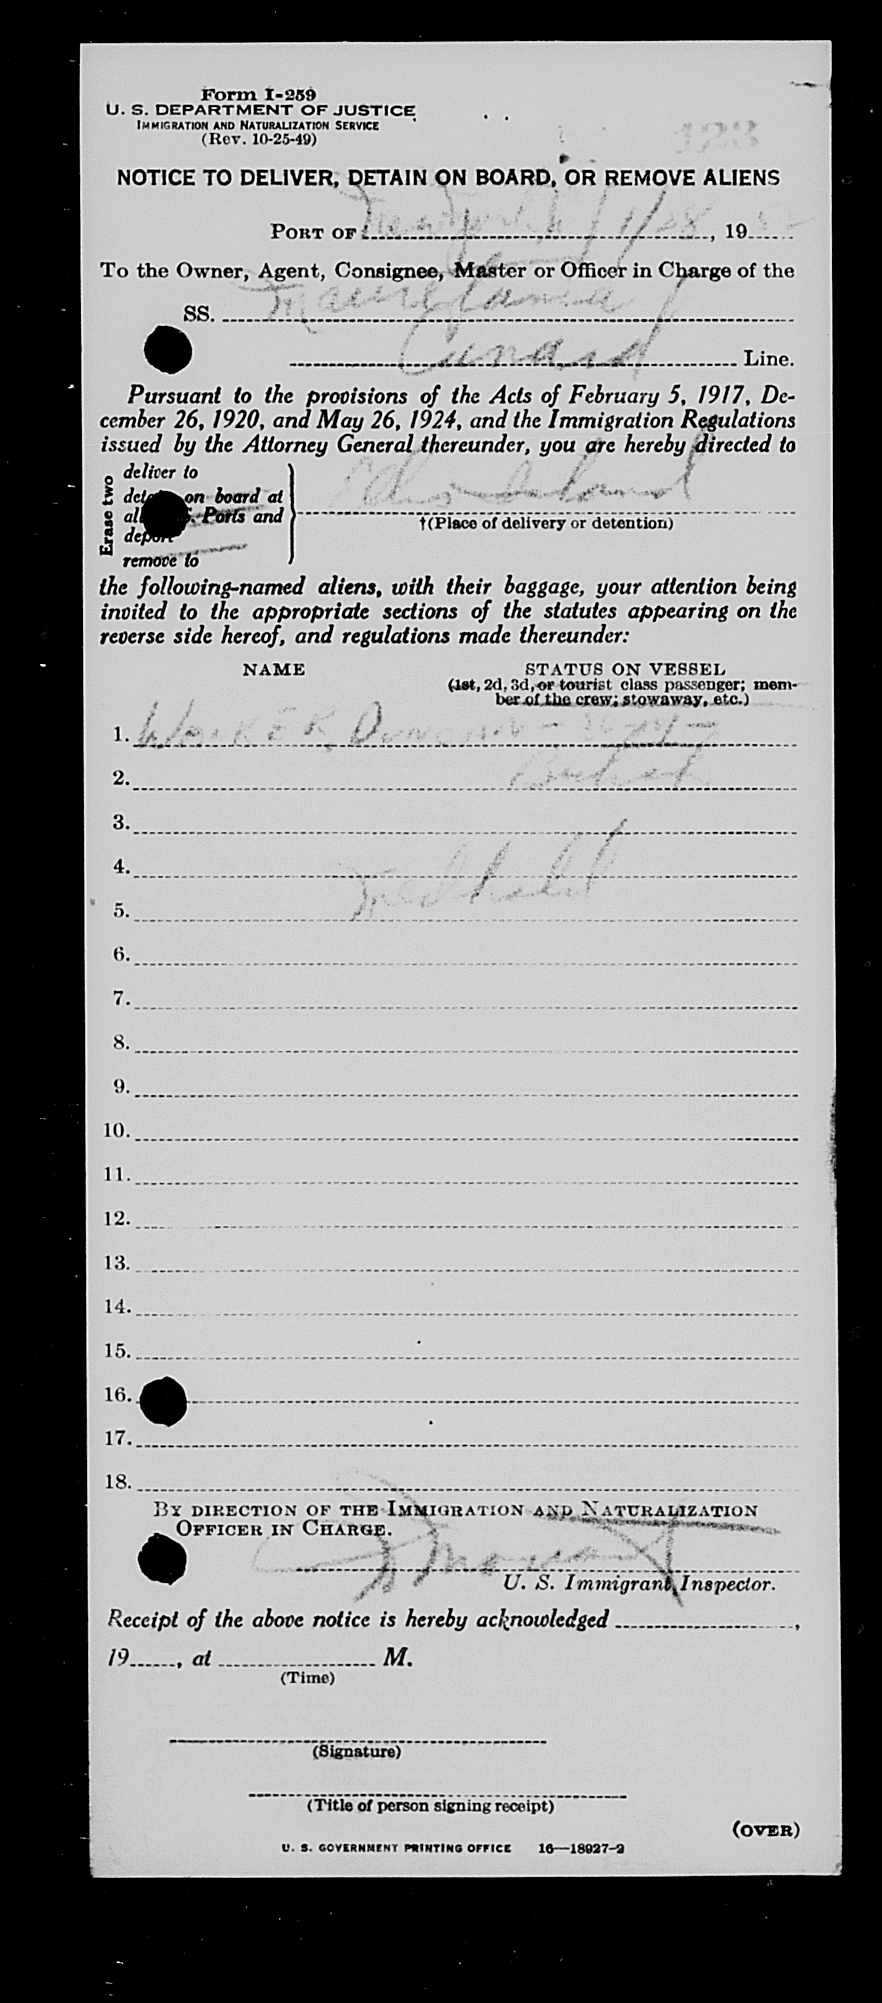 Form I-259
U. S. DEPARTMENT OF JUSTICE
IMMIGRATION AND NATURALIZATION SERVICE
(Rev. 10-25-49)
123
NOTICE TO DELIVER, DETAIN ON BOARD, OR REMOVE ALIENS
PORT OF New York 1/28, 19
To the Owner, Agent, Consignee, Master or Officer in Charge of the
SS. Mauretania
Cunard Line.
Pursuant to the provisions of the Acts of February 5, 1917, De-
cember 26, 1920, and May 26, 1924, and the Immigration Regulations
issued by the Attorney General thereunder, you are hereby directed to
Erase two
deliver to
on board at
Ports and
remove to
Island
†(Place of delivery or detention)
the following-named aliens, with their baggage, your attention being
invited to the appropriate sections of the statutes appearing on the
reverse side hereof, and regulations made thereunder:
NAME STATUS ON VESSEL
(1st, 2d, 3d, or tourist class passenger; mem-
ber of the crew; stowaway, etc.)
1. WALKER, Duncan
2. British
3.
4.
5. Med held
6.
7.
8.
9.
10.
11.
12.
13.
14.
15.
16.
17.
18.
BY DIRECTION OF THE IMMIGRATION AND NATURALIZATION
OFFICER IN CHARGE.
U. S. Immigrant Inspector.
Receipt of the above notice is hereby acknowledged ,
19 , at M.
(Time)
(Signature)
(Title of person signing receipt)
(OVER)
U. S. GOVERNMENT PRINTING OFFICE 16—18927-2